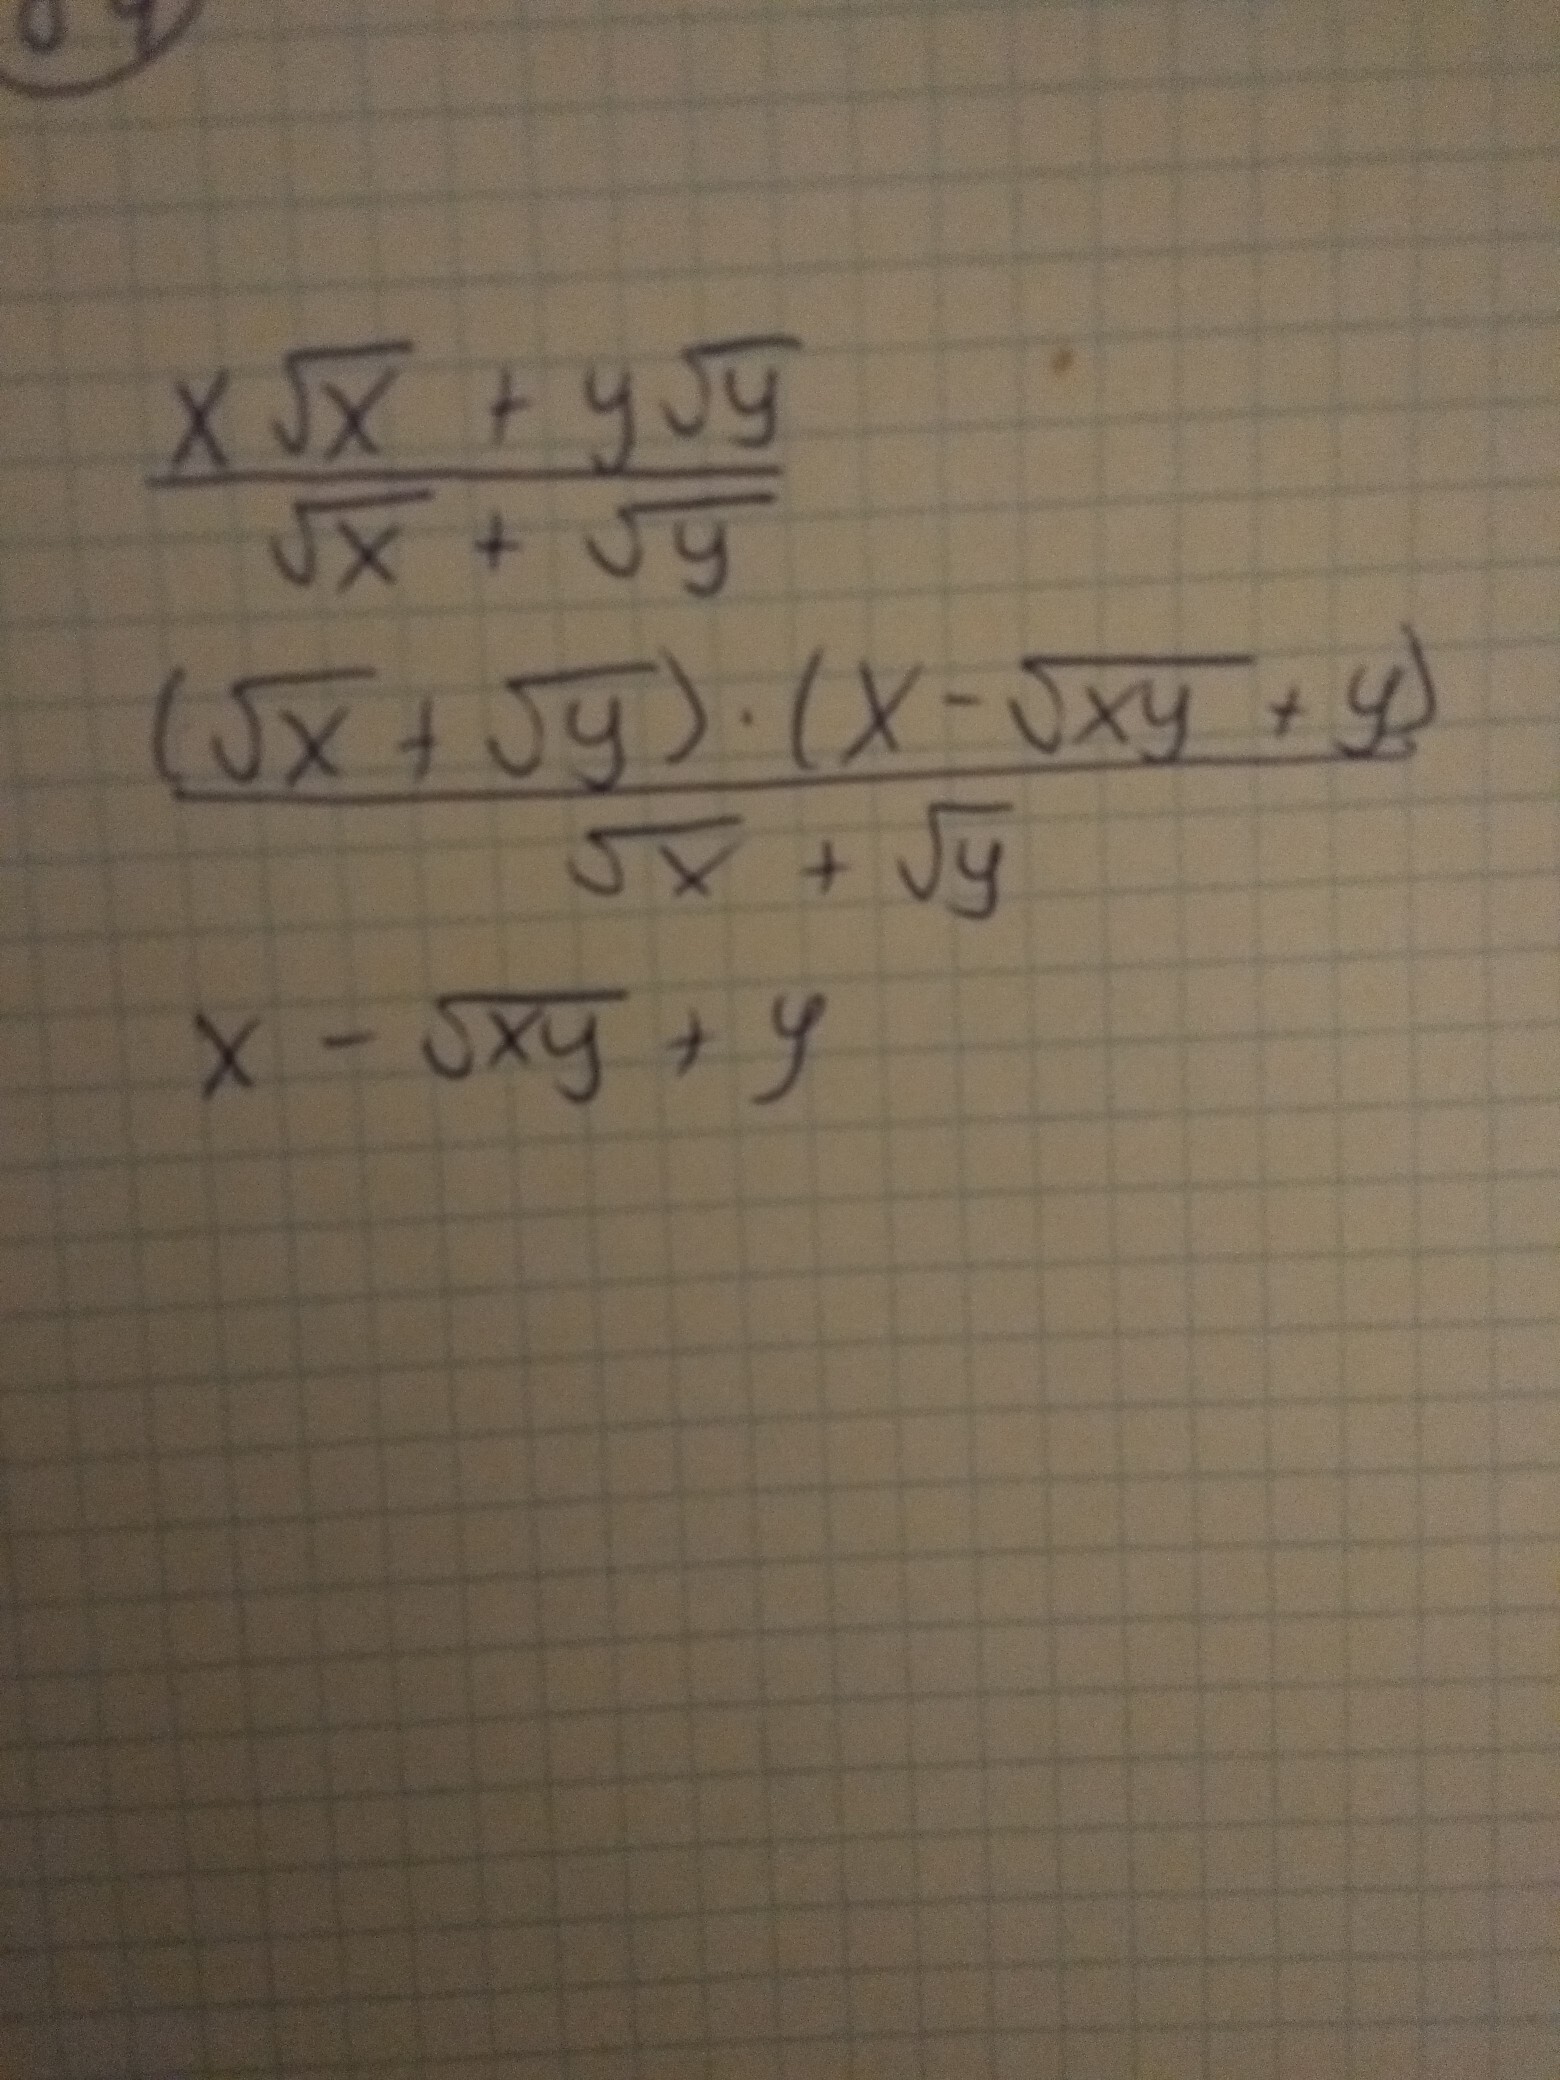 x√x + y√y
√x + √y
(√x + √y) · (x - √xy + y)
√x + √y
x - √xy + y